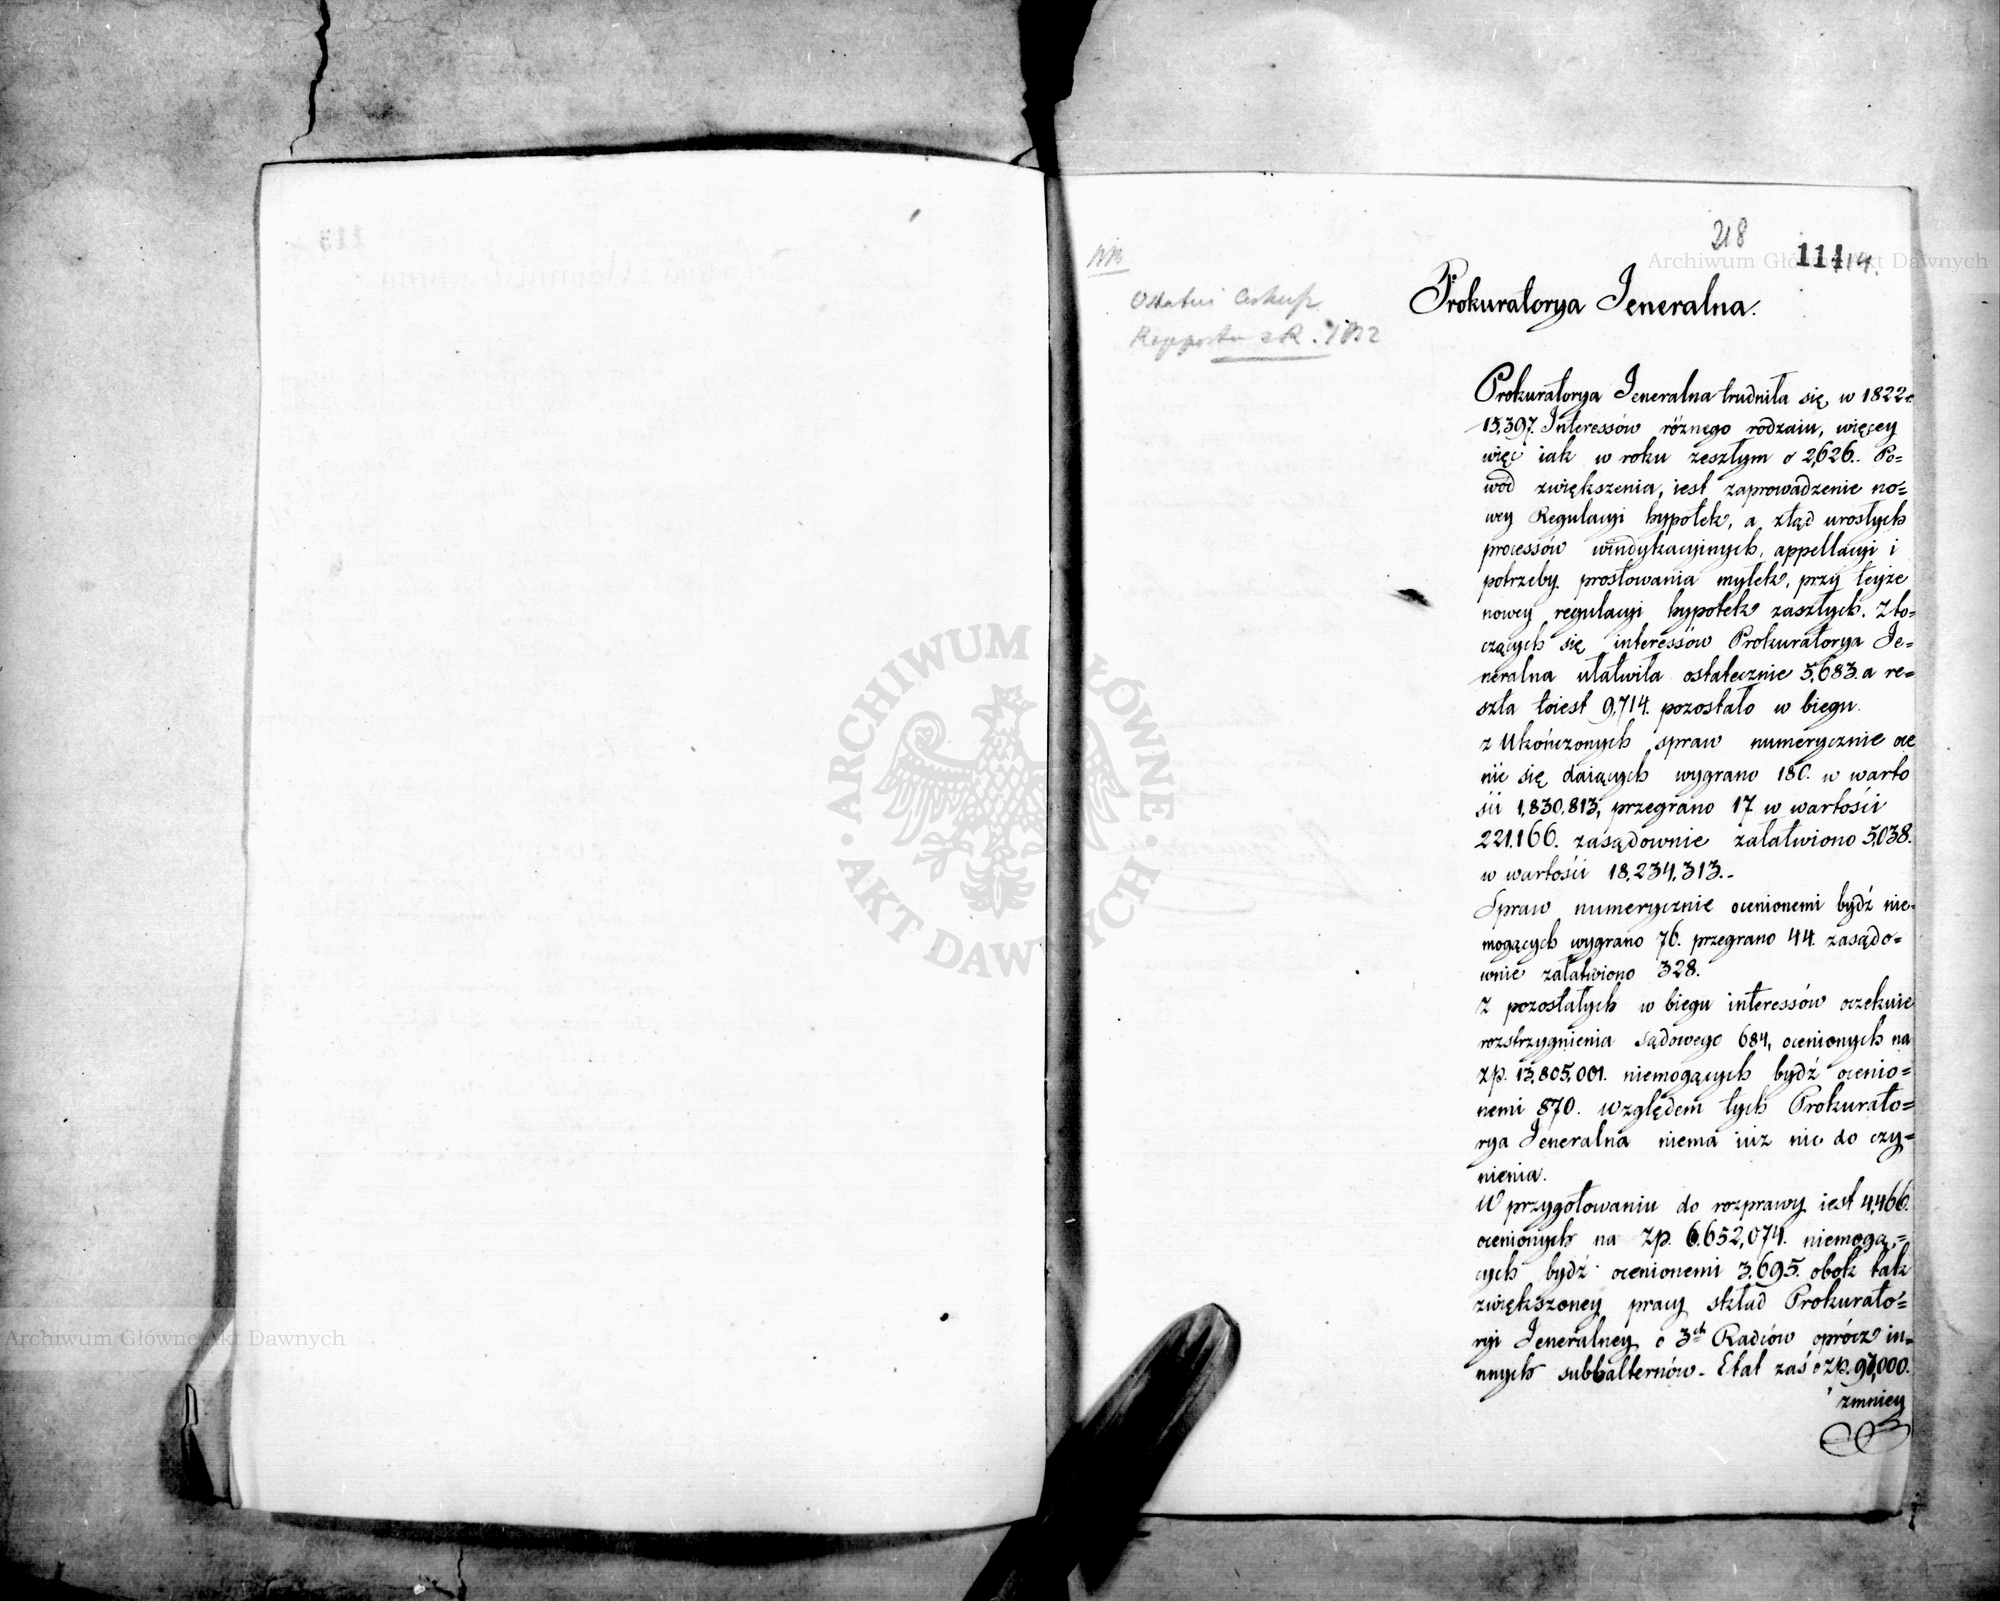 218
114 114.
Ostatni Arkusz
Rapportu z R. 1822
Prokuratorya Jeneralna.
Prokuratorya Jeneralna trudniła się w 1822 r.
15,397. Interessów różnego rodzaiu, więcey
więc iak w roku zeszłym o 2,626. Po=
wód zwiększenia, iest zaprowadzenie no=
wey Regulacyi hypotek, a ztąd urosłych
processów windykacyinych, appellacyi i
potrzeby prostowania myłek, przy teyże
nowey regulacyi hypotek zaszłych. Z to=
czących się interessów Prokuratorya Je=
neralna ułatwiła ostatecznie 5,683. a re=
szta toiest 9,714. pozostało w biegu.
z Ukończonych spraw numerycznie oce
nić się daiących wygrano 180. w warto
ści 1,830,813, przegrano 17 w wartości
221,166. zasądownie załatwiono 5,038.
w wartości 18,234,313.-
Spraw numerycznie ocenionemi bydź nie=
mogących wygrano 76. przegrano 44. zasądo=
wnie załatwiono 328.
Z pozostałych w biegu interessów oczekuie
rozstrzygnienia sądowego 684, ocenionych na
zp. 13,805,001. niemogących bydź ocenio=
nemi 870. względem tych Prokurato=
rya Jeneralna niema iuż nic do czy=
nienia.
W przygotowaniu do rozprawy iest 4,466.
ocenionych na zp. 6,652,074. niemogą=
cych bydź ocenionemi 3,695. obok tak
zwiększoney pracy skład Prokurato=
ryi Jeneralney o 3ch Radców oprócz in=
nnych subbalternów - Etat zaś o zp. 97,000.
zmniey
Archiwum Główne Akt Dawnych
ARCHIWUM GŁÓWNE AKT DAWNYCH
Archiwum Główne Akt Dawnych